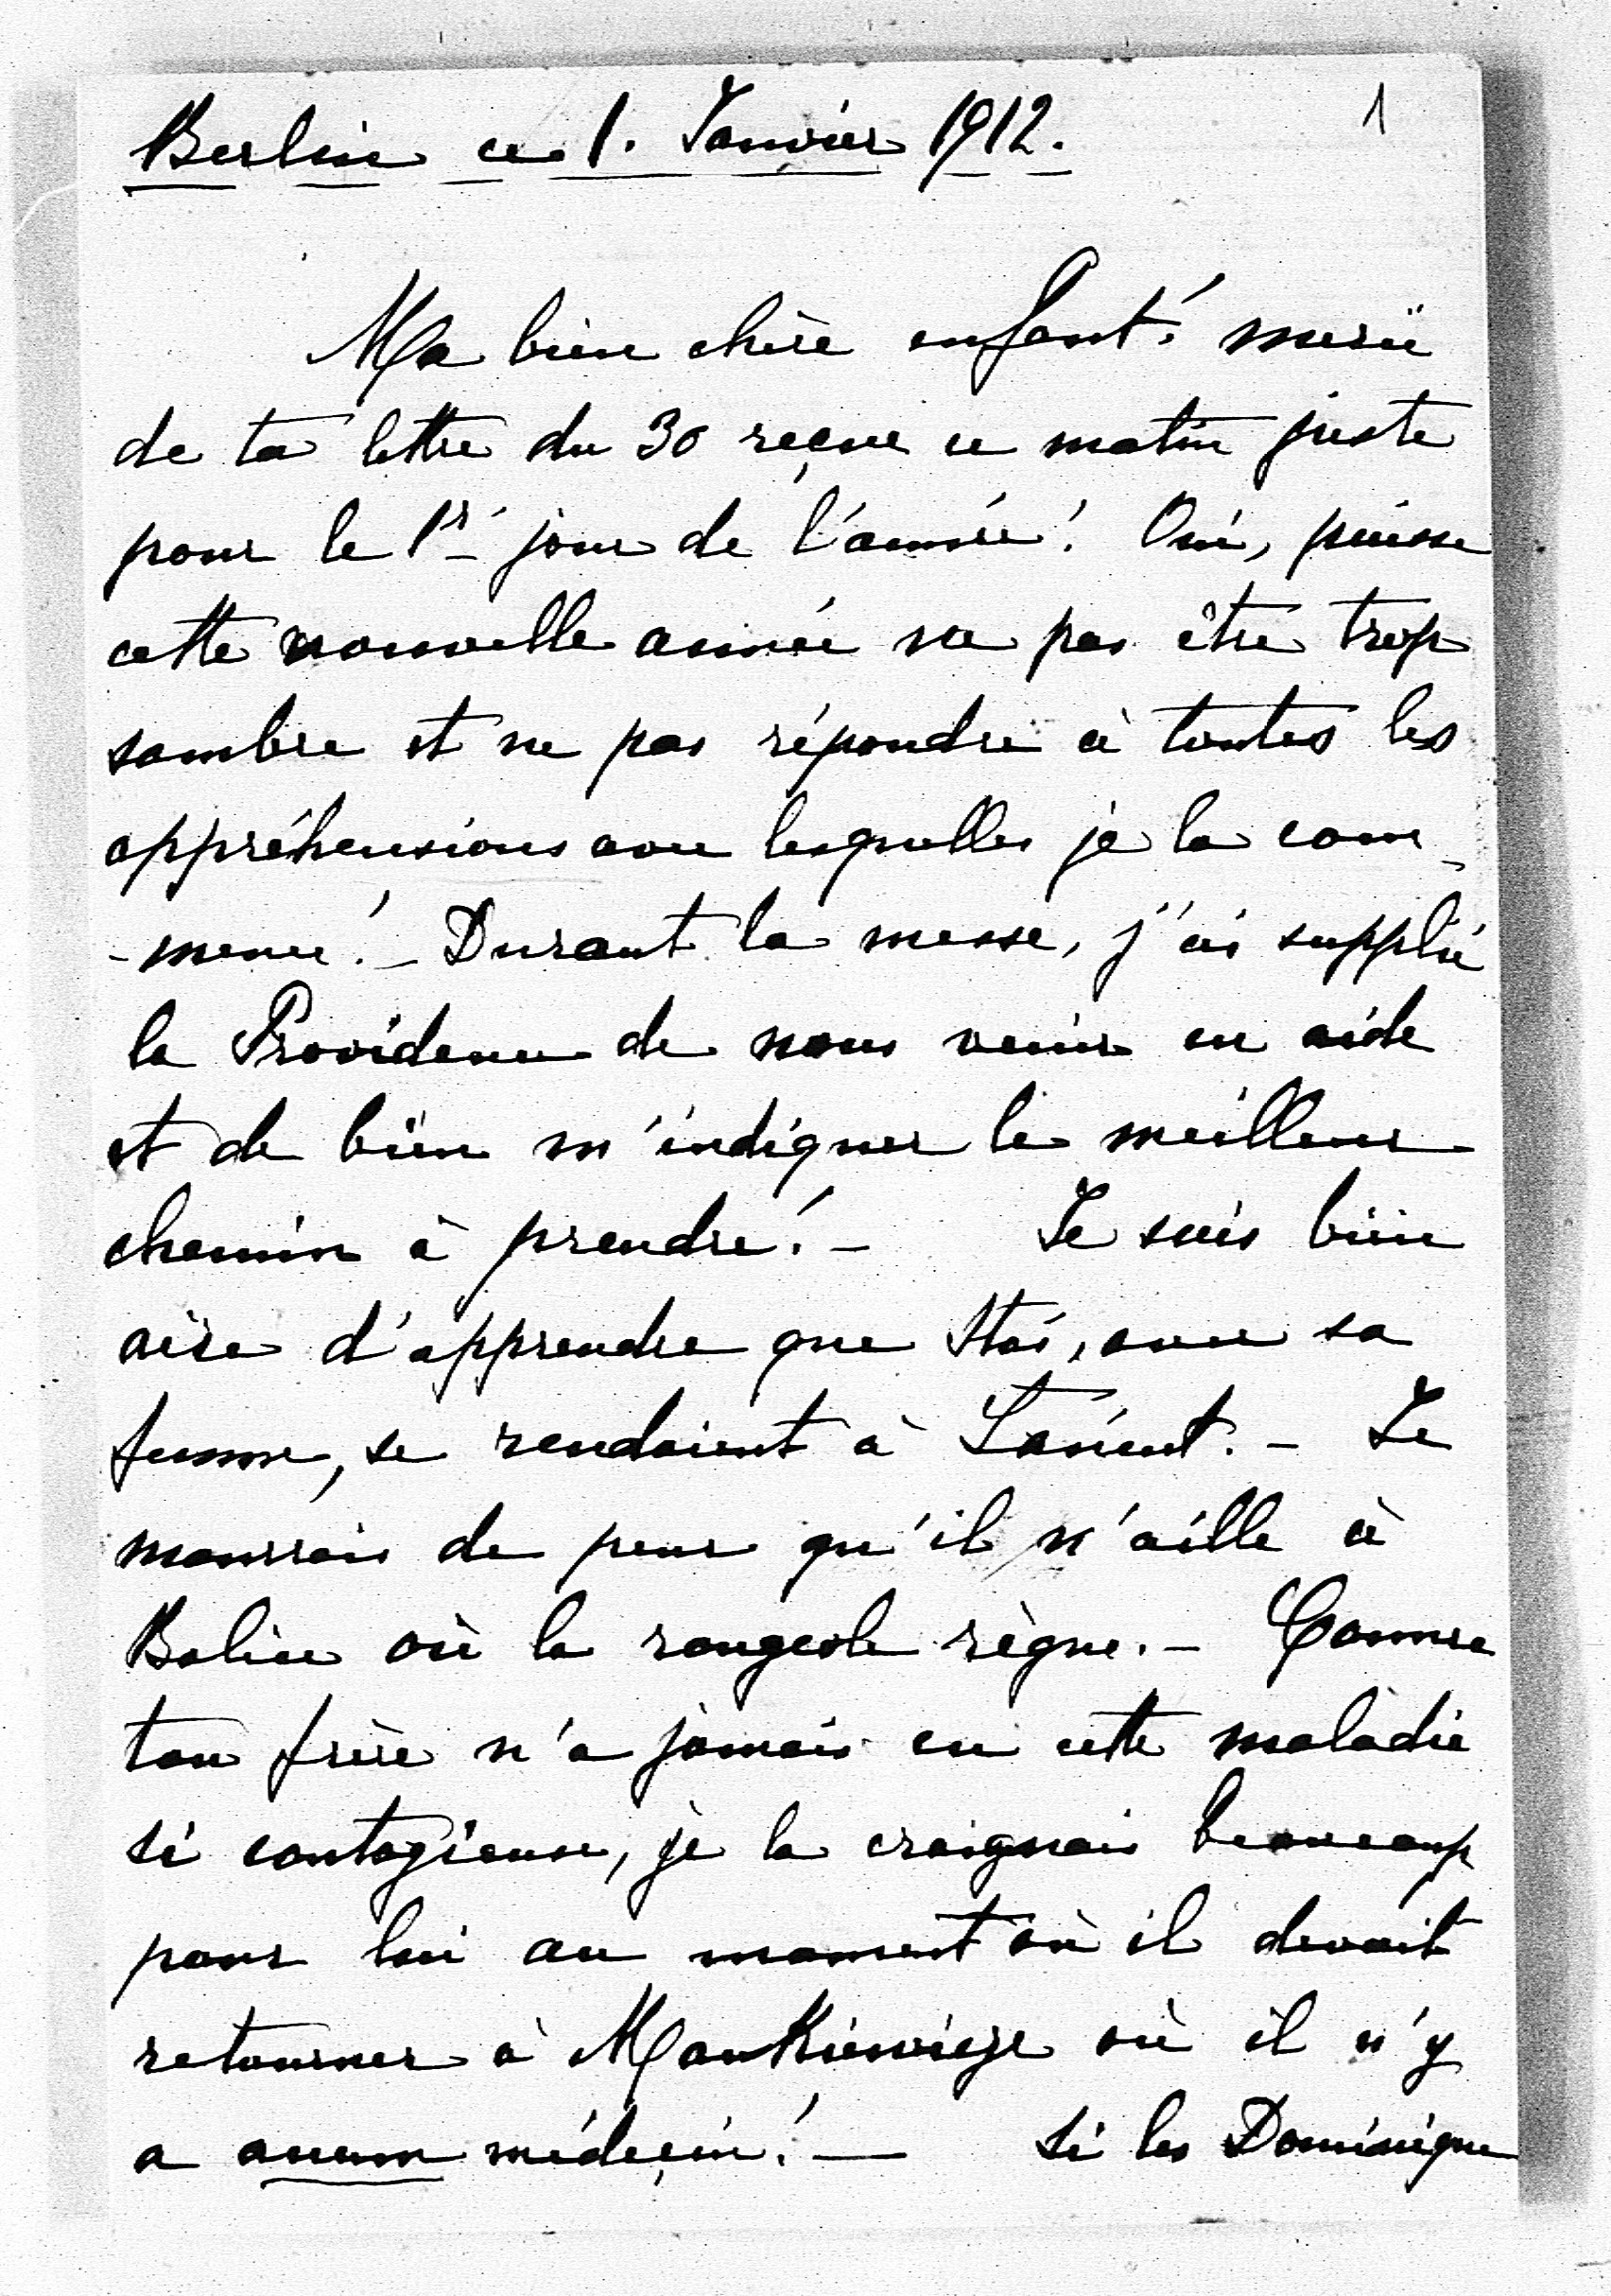 Berlin ce 1. Janvier 1912.
1
Ma bien chère enfant! merci
de ta lettre du 30 reçue ce matin juste
pour le 1er jour de l'année! Oui, puisse
cette nouvelle année ne pas être trop
sombre et ne pas répondre à toutes les
appréhensions avec lesquelles je la com-
-mence! – Durant la messe, j'ai supplié
la Providence de nous venir en aide
et de bien m'indiquer le meilleur
chemin à prendre! – Je suis bien
aise d'apprendre que Staś, avec sa
femme, se rendaient à Łańcut. – Je
mourrais de peur qu'il n'aille à
Balice où la rougeole règne. – Comme
ton frère n'a jamais eu cette maladie
si contagieuse, je la craignais beaucoup
pour lui au moment où il devait
retourner à Mankiewicze où il n'y
a aucun médeçin! — Si les Dominique